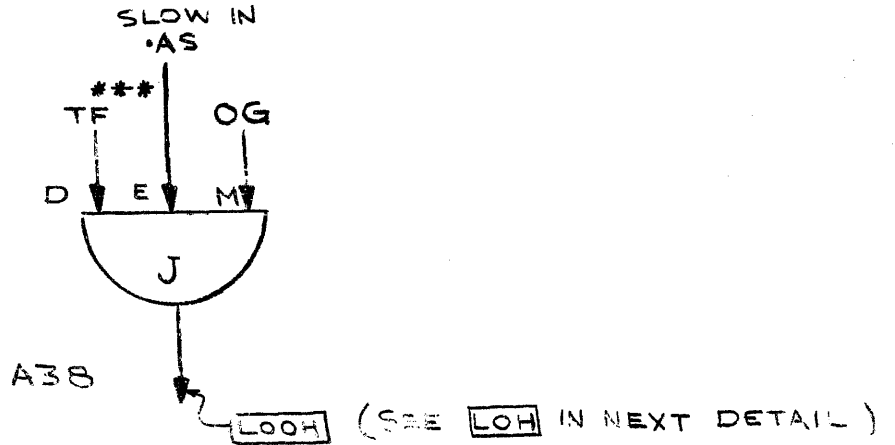 SLOW IN
·AS
***
TF OG
D E M
J
A38
LOOH (SEE LOH IN NEXT DETAIL)